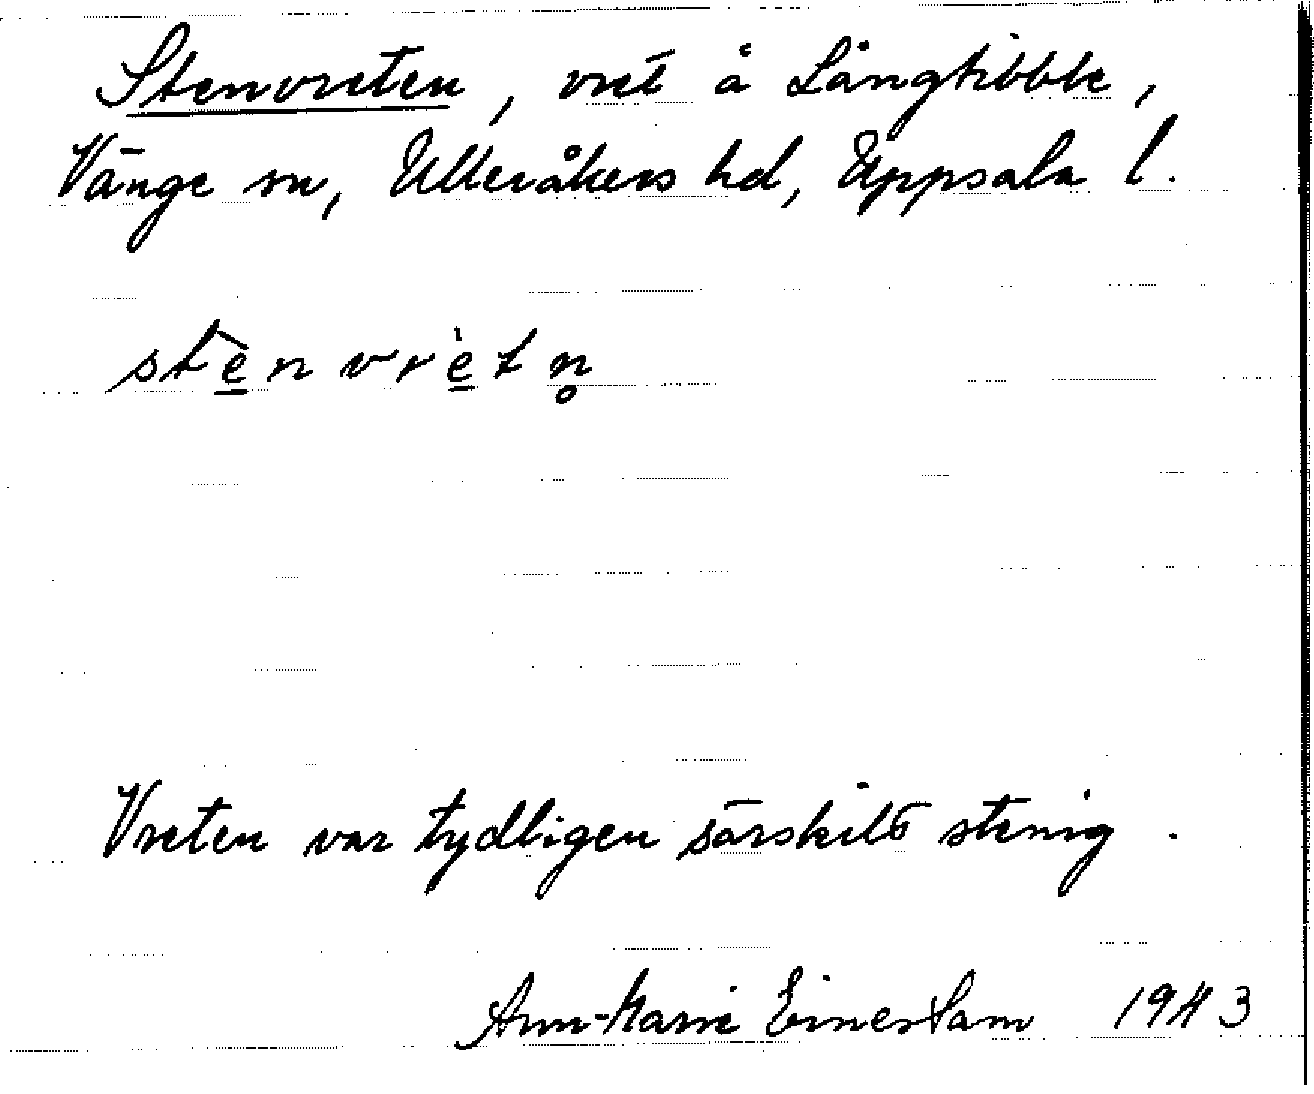 Stenvreten, vret å Långtibble,
Vänge sn, Ulleråkers hd, Uppsala l.
stè̲nvrè̲tn̥
Vreten var tydligen särskilt stenig.
Ann-Marie Einerstam 1943